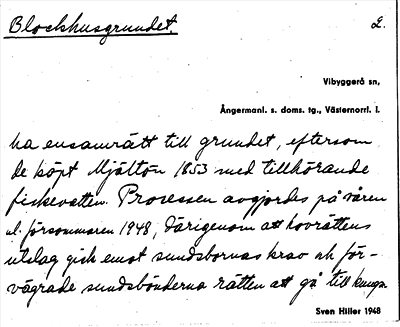 Blockhusgrundet.
2.
Vibyggerå sn,
Ångermanl. s. doms. tg., Västernorrl. l.
ha ensamrätt till grundet, eftersom
de köpt Mjältön 1853 med tillhörande
fiskevatten. Processen avgjordes på våren
el. försommaren 1948, därigenom att hovrättens
utslag gick emot sundsbornas krav och för-
vägrade sundsbönderna rätten att gå till kungs.
Sven Hiller 1948